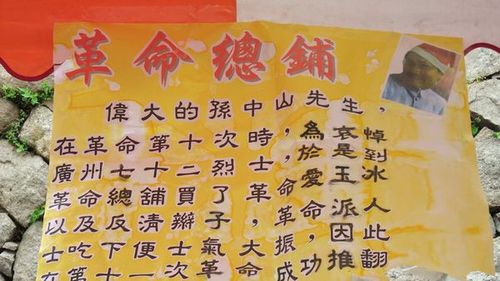 革命總鋪
偉大的孫中山先生，
在革命第十次時，為哀悼
廣州七十二烈士，於是到
革命總舖買了革命愛玉冰
以及反清辮子，革命派人
士吃下便士氣大振，因此
在第十一次革命成功推翻